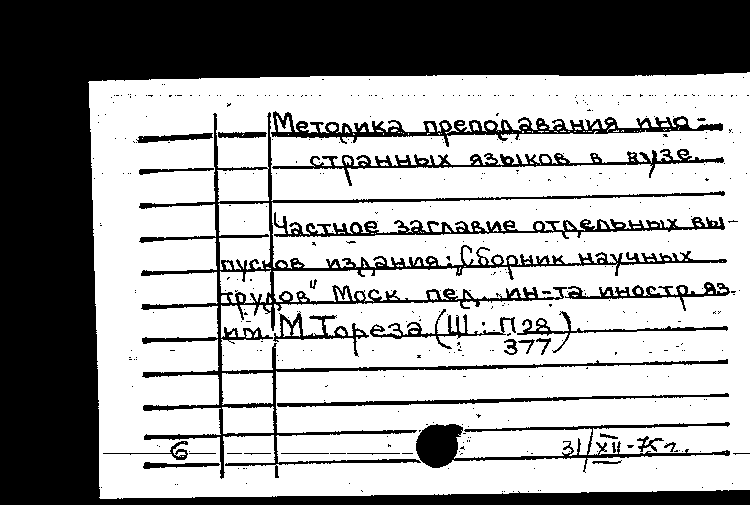 Методика преподавания ино-
странных языков в вузе.
Частное заглавие отдельных вы-
пусков издания: „Сборник научных
трудов" Моск. пед. ин-та иностр. яз.
им. М. Тореза (Ш: П28/377).
6
31/XII-75 г.